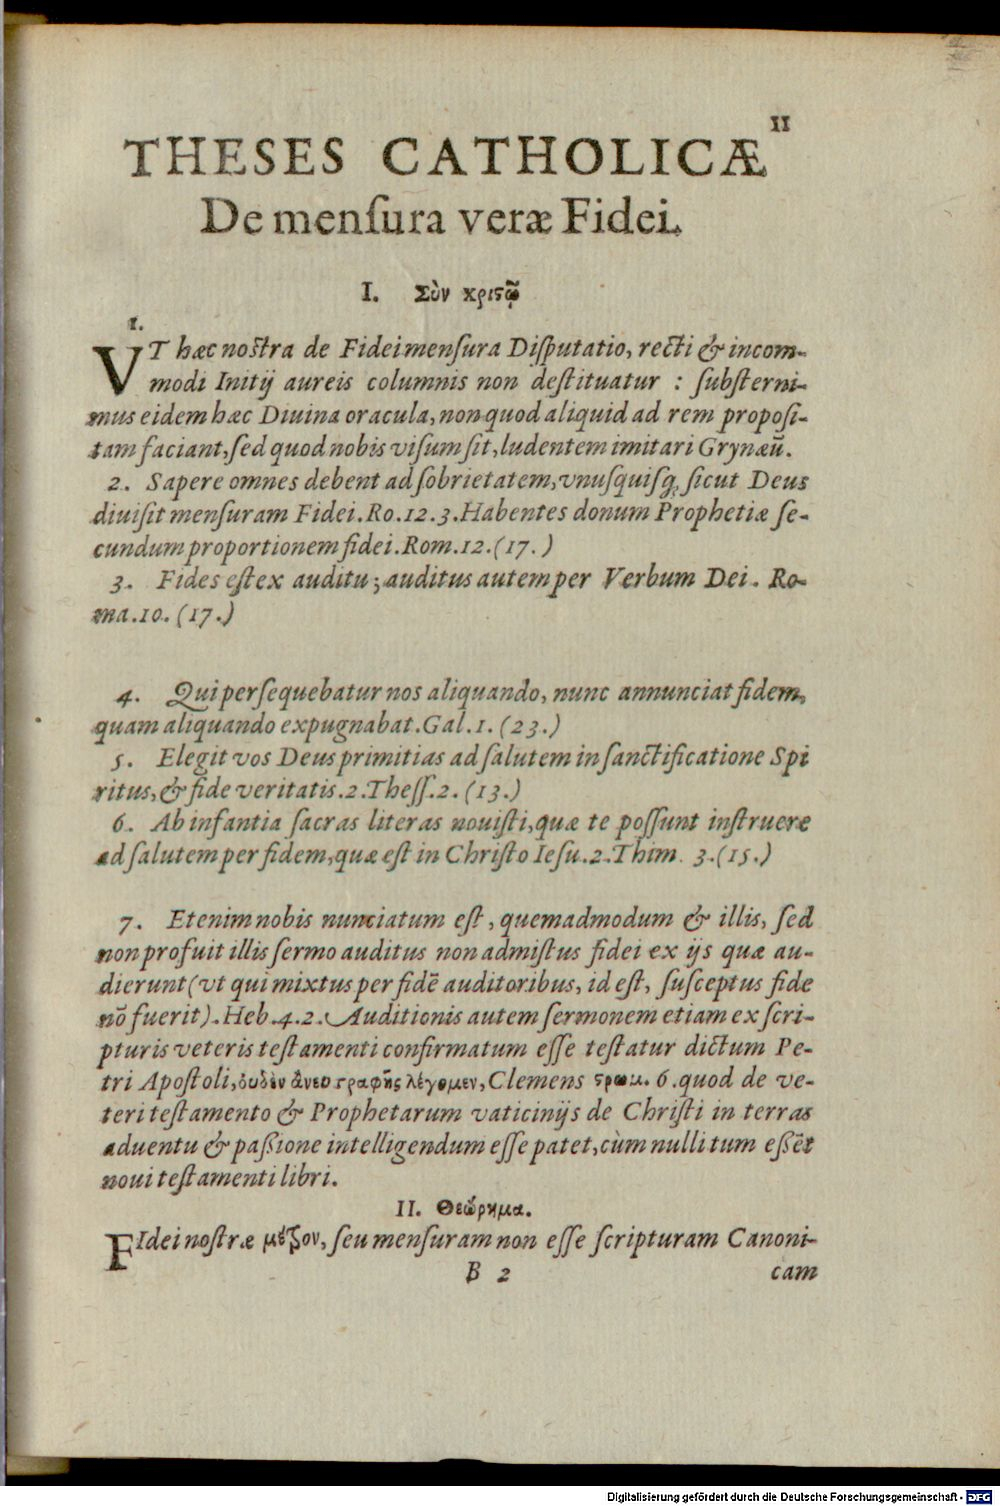 11
THESES CATHOLICÆ
De menſura veræ Fidei.
I. Σὺν χριϛῷ
1.
VT hæc noſtra de Fidei menſura Diſputatio, recti & incom-
modi Initij aureis columnis non deſtituatur : ſubſterni-
mus eidem hæc Diuina oracula, non quod aliquid ad rem propoſi-
tam faciant, ſed quod nobis viſum ſit, ludentem imitari Grynæũ.
2. Sapere omnes debent ad ſobrietatem, vnuſquiſq; ſicut Deus
diuiſit menſuram Fidei. Ro. 12. 3. Habentes donum Prophetiæ ſe-
cundum proportionem fidei. Rom. 12. (17. )
3. Fides eſt ex auditu; auditus autem per Verbum Dei. Ro-
ma. 10. (17.)
4. Qui perſequebatur nos aliquando, nunc annunciat fidem,
quam aliquando expugnabat. Gal. 1. (23.)
5. Elegit vos Deus primitias ad ſalutem in ſanctificatione Spi
ritus, & fide veritatis. 2. Theſſ. 2. (13.)
6. Ab infantia ſacras literas nouiſti, quæ te poſſunt inſtruere
ad ſalutem per fidem, quæ eſt in Chriſto Ieſu. 2. Thim. 3. (15.)
7. Etenim nobis nunciatum eſt, quemadmodum & illis, ſed
non profuit illis ſermo auditus non admiſtus fidei ex ijs quæ au-
dierunt (vt qui mixtus per fidẽ auditoribus, id eſt, ſuſceptus fide
nõ fuerit). Heb. 4. 2. Auditionis autem ſermonem etiam ex ſcri-
pturis veteris teſtamenti confirmatum eſſe teſtatur dictum Pe-
tri Apoſtoli, ὀυδὲν ἄνευ γραφῆς λέγομεν, Clemens ϛρωμ. 6. quod de ve-
teri teſtamento & Prophetarum vaticinijs de Chriſti in terras
aduentu & paßione intelligendum eſſe patet, cùm nulli tum eßẽt
noui teſtamenti libri.
II. Θεώρημα.
FIdei noſtræ μέζον, ſeu menſuram non eſſe ſcripturam Canoni-
B 2 cam
Digitalisierung gefördert durch die Deutsche Forschungsgemeinschaft - DFG